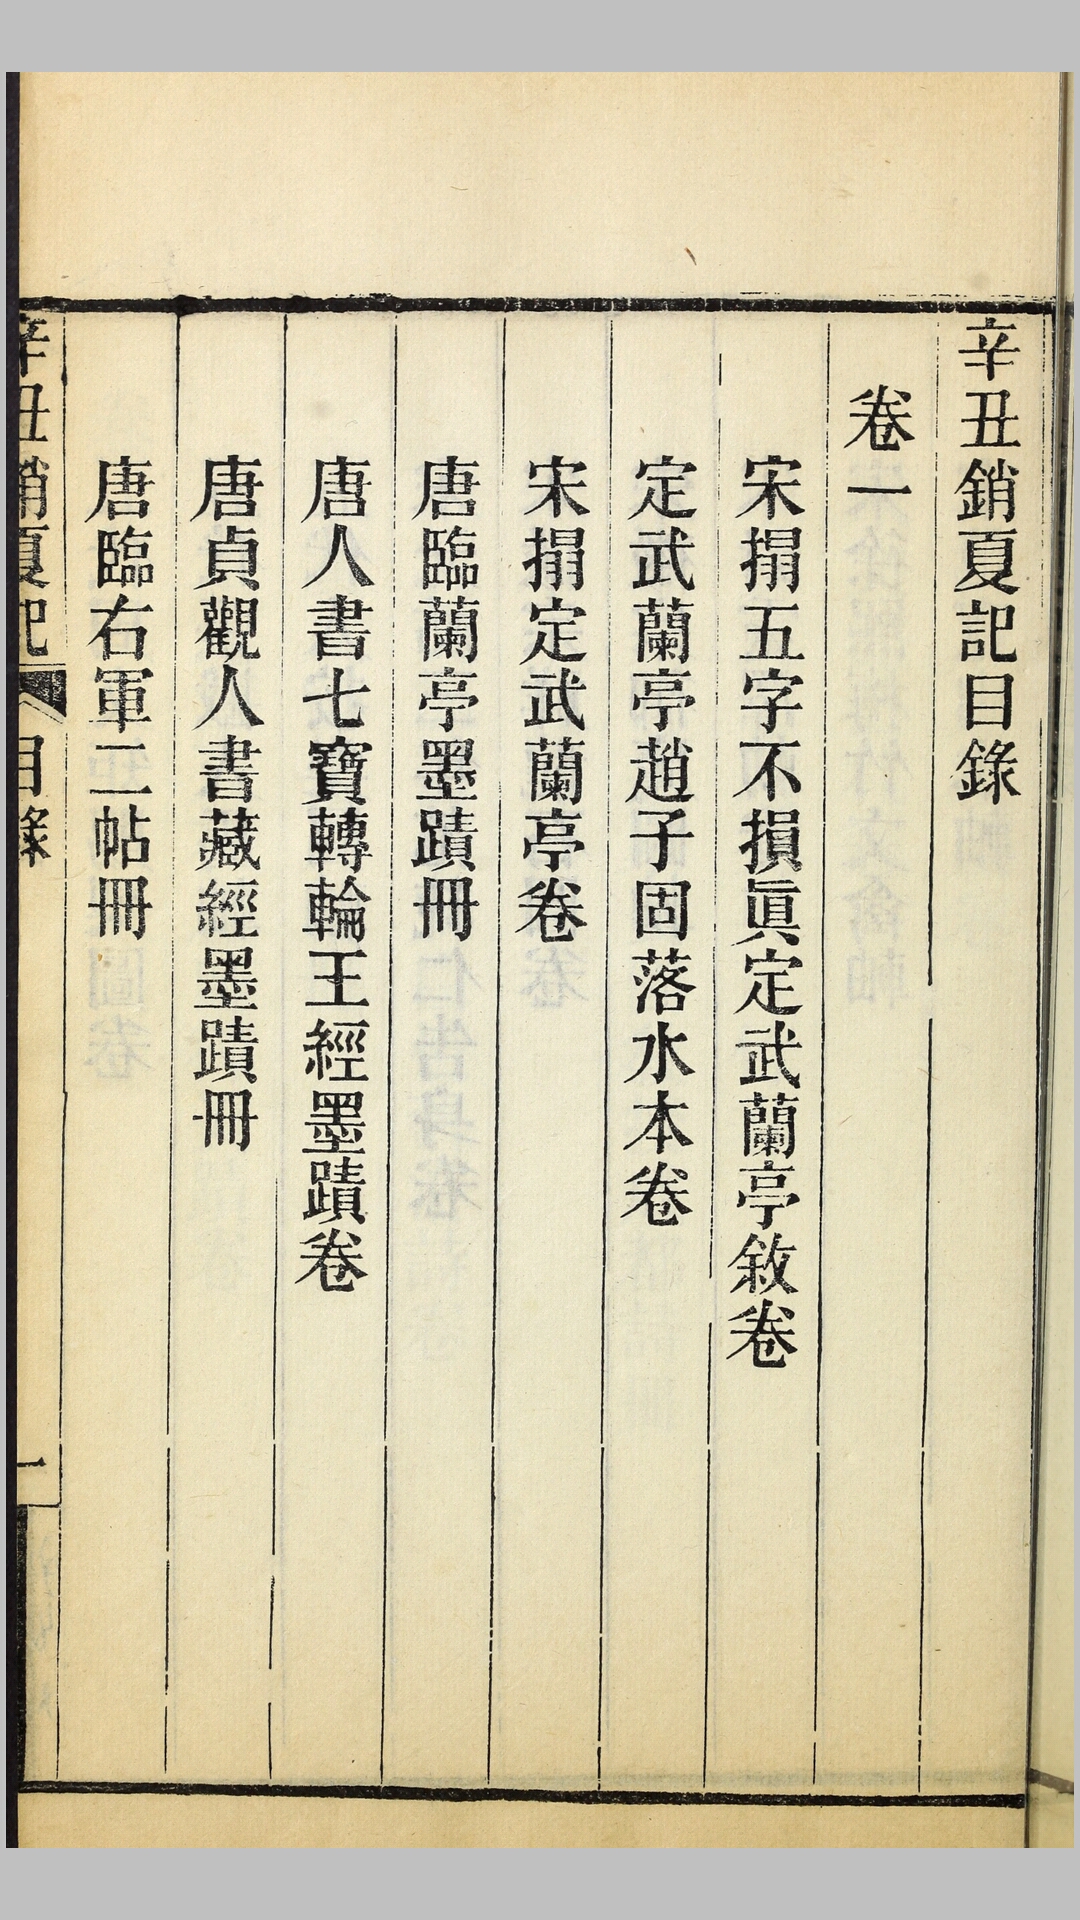 辛丑銷夏記目錄
卷一
宋搨五字不損眞定武蘭亭敘卷
定武蘭亭趙子固落水本卷
宋搨定武蘭亭卷
唐臨蘭亭墨蹟冊
唐人書七寶轉輪王經墨蹟卷
唐貞觀人書藏經墨蹟冊
唐臨右軍二帖冊
辛丑銷夏記 目錄 一